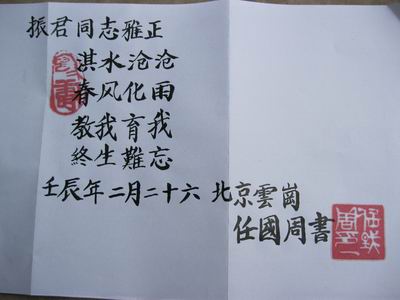 振君同志雅正
淇水沧沧
春风化雨
教我育我
终生難忘
壬辰年二月二十六 北京雲崗
任國周書